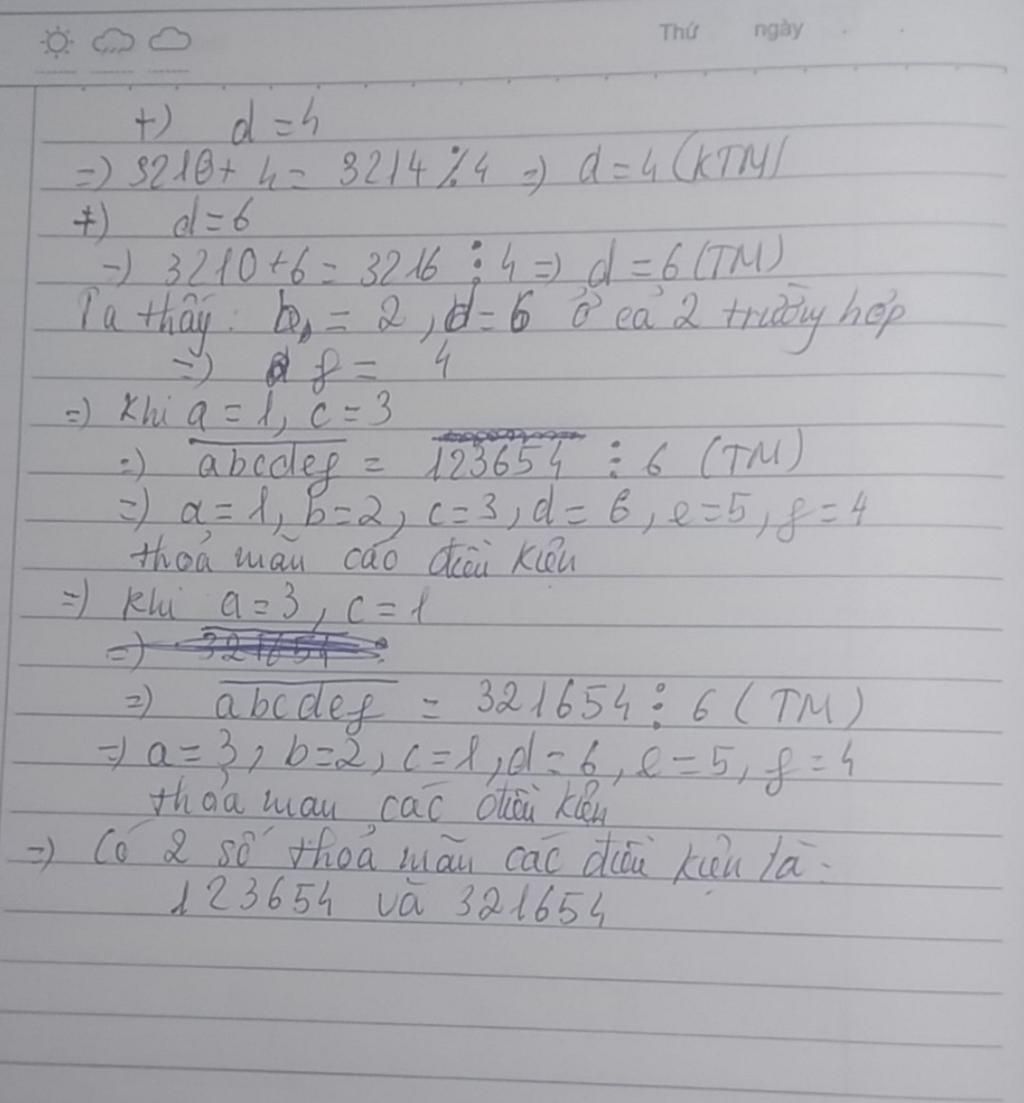 Thứ ngày
+) d = 4
=) 3210 + 4 = 3214 ⋮̸ 4 =) d = 4 (KTM)
+) d = 6
=) 3210 + 6 = 3216 ⋮ 4 =) d = 6 (TM)
Ta thấy: b = 2, d = 6 ở cả 2 trường hợp
=) f = 4
=) Khi a = 1, c = 3
=) abcdef = 123654 ⋮ 6 (TM)
=) a = 1, b = 2, c = 3, d = 6, e = 5, f = 4
thoả mãn các điều kiện
=) Khi a = 3, c = 1
=) 321654 ⋮
=) abcdef = 321654 ⋮ 6 (TM)
=) a = 3, b = 2, c = 1, d = 6, e = 5, f = 4
thoả mãn các điều kiện
=) Có 2 số thoả mãn các điều kiện là:
123654 và 321654